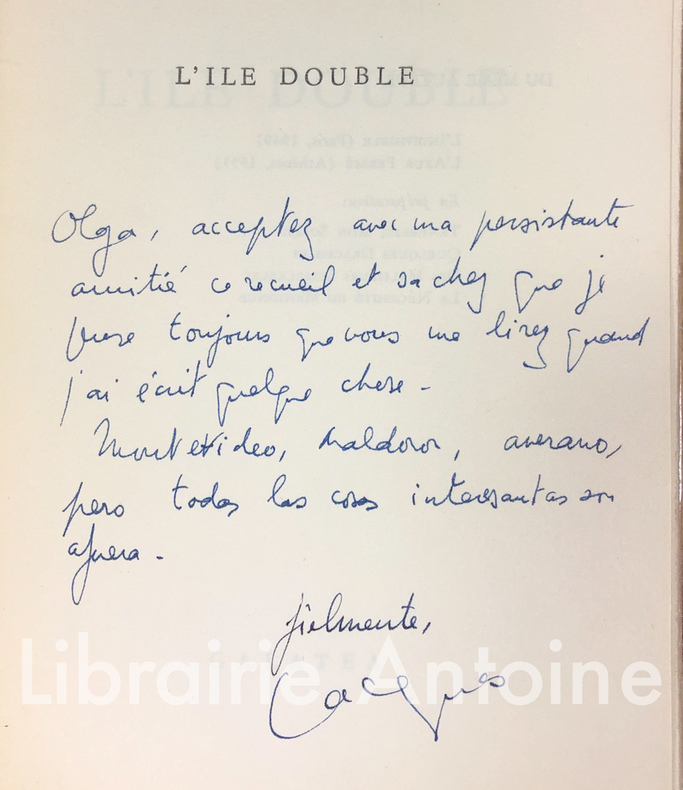 L'ILE DOUBLE
Olga, acceptez avec ma persistante
amitié ce recueil et sachez que je
pense toujours que vous me lirez quand
j'ai écrit quelque chose.
Montevideo, Maldoror,
pero todas las cosas interesantes son
afuera.
fielmente,
Jacques
Librairie Antoine